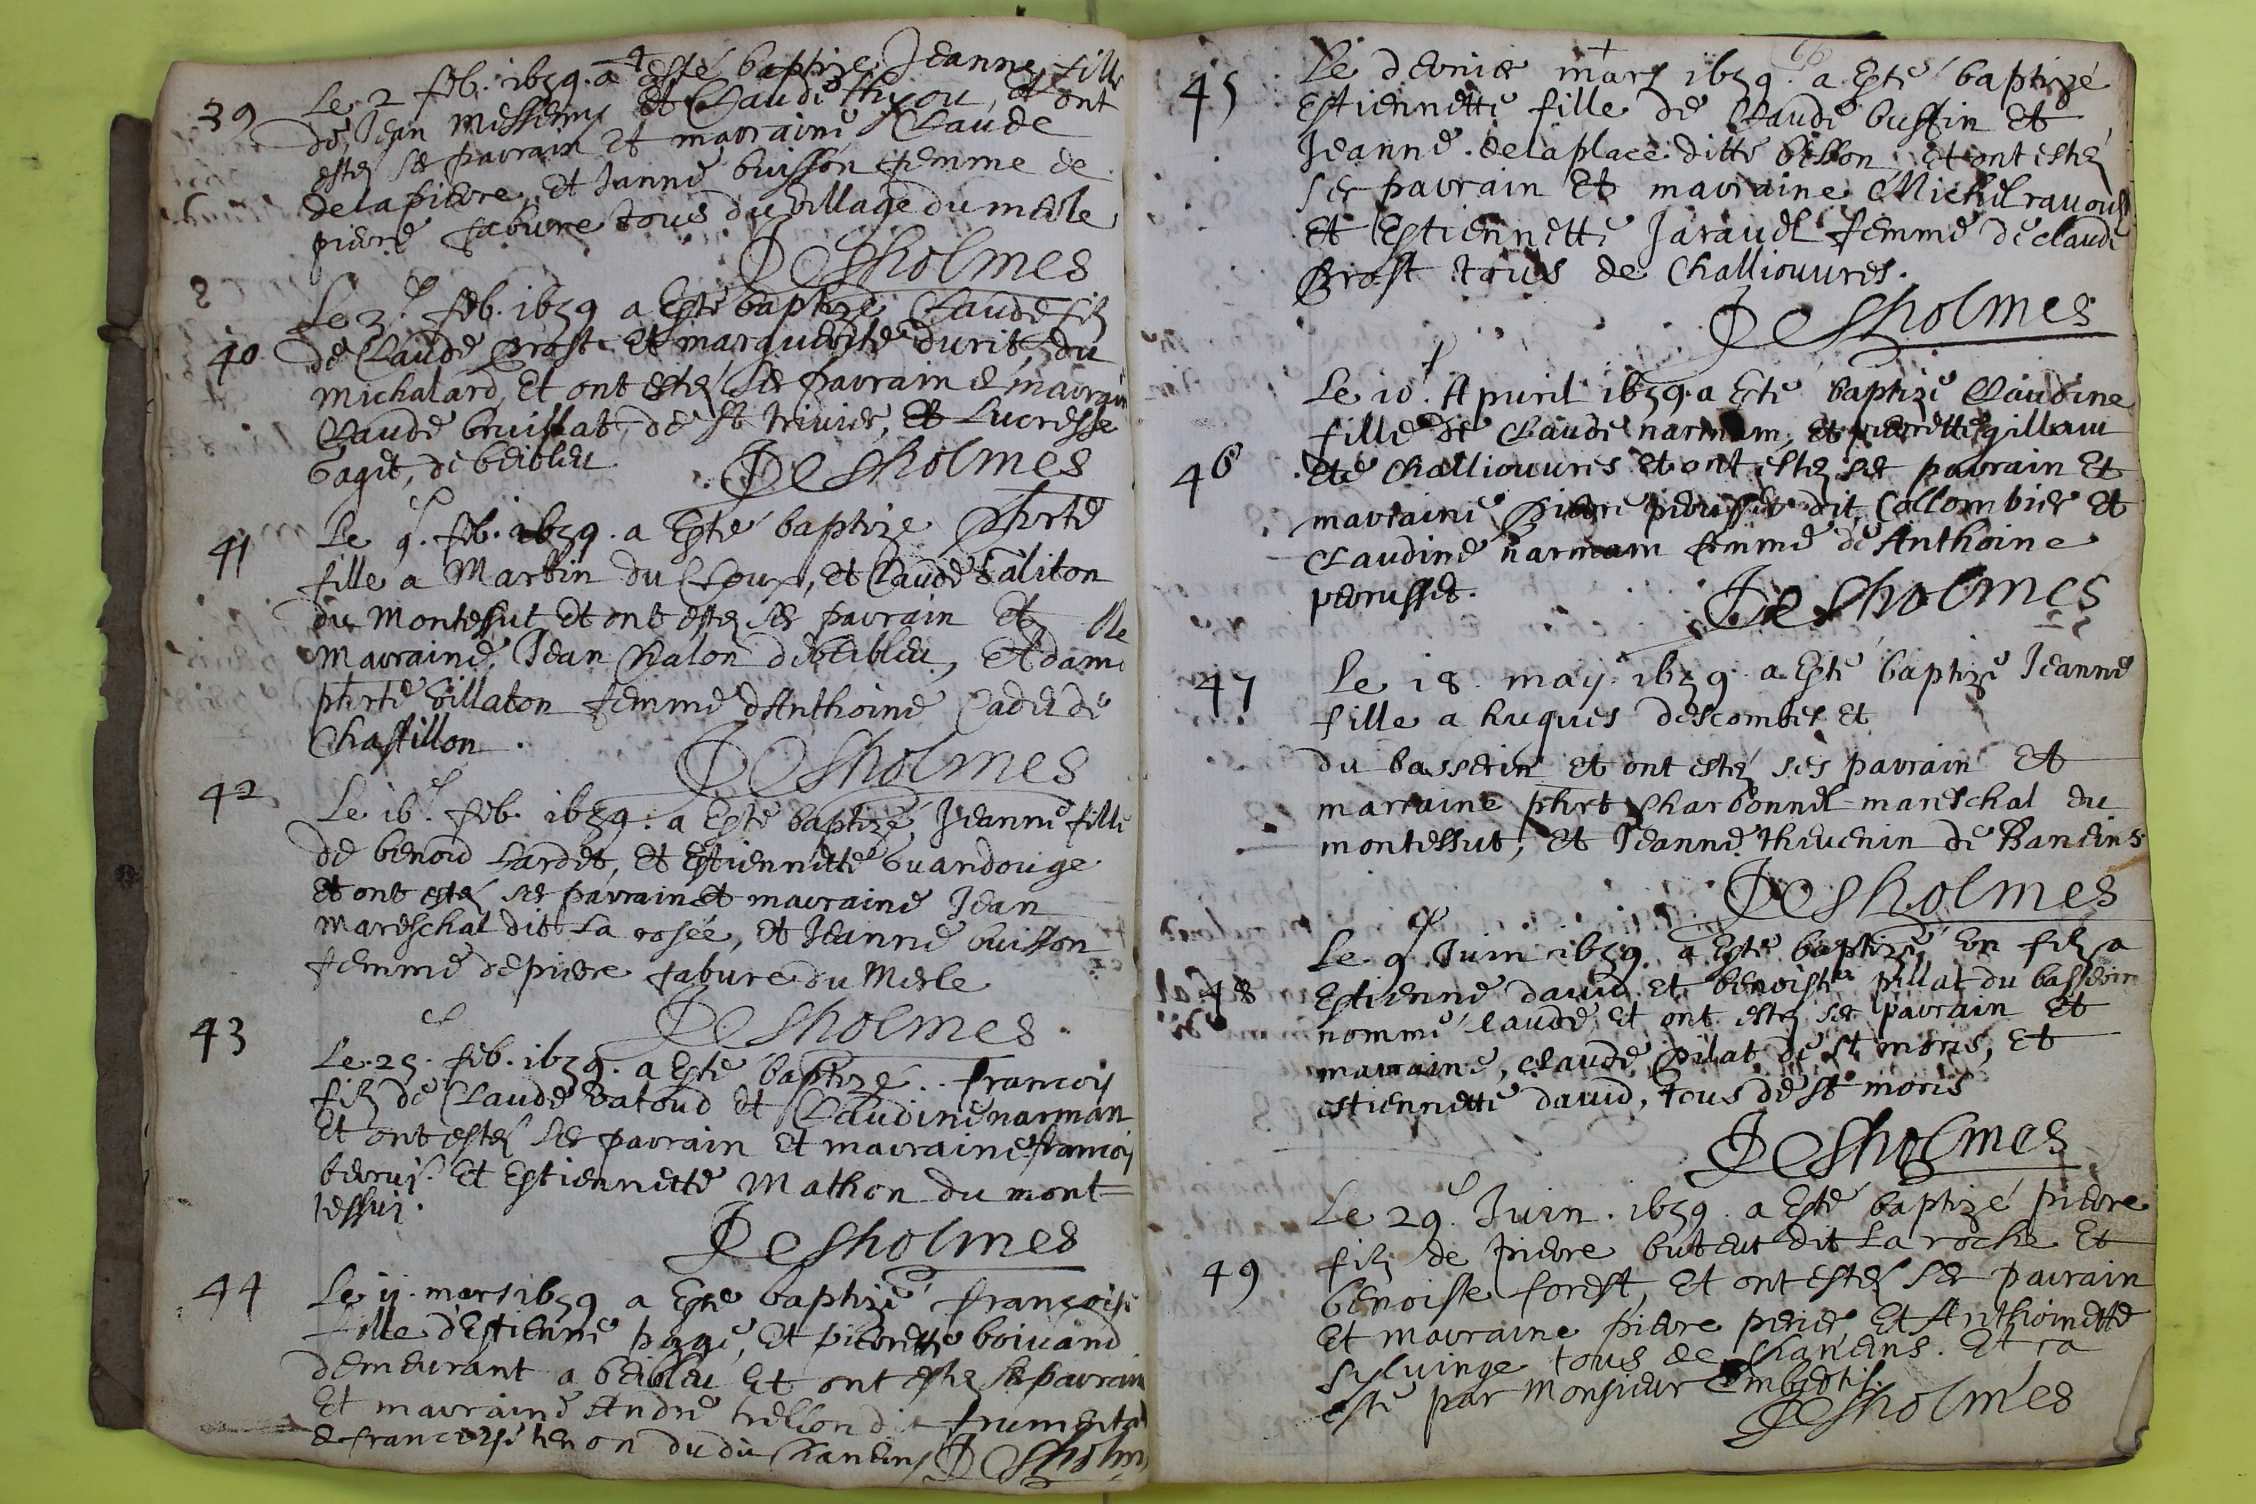 39 Le 2 feb. 1659. a esté baptize Jeanne fille
de Jean Messemy et Claude et ont
estez ses parrain et marraine Claude
delapierre et Janne buisson femme de
pierre fabure tous du village du mesle
Desholmes
Le 3. feb. 1659 a Esté baptizé Claude filz
40 de Claude Prost et marguerite durit, du
michalard, Et ont estez ses parrain & marraine
Claude bruillat, de st trivier, et Lucresse
bagit, de beibleu
Desholmes
41 Le 9. feb. 1659. a Esté baptize phrte
fille a Martin du Cloux, et Claude
du Montessut Et ont estez ses parrain Et
marraine, Jean Chalon de beibleu, Et dame
phrte billaton femme d'Anthoine Cadet de
Chastillon.
Desholmes
42 Le 16. feb. 1659. a Esté baptizé Jeanne fille
de benoid Lardet, et Estiennette buandouge
Et ont estez ses parrain et marraine Jean
mareschal dit La rosée, et Jeanne buisson
femme de pierre fabure du Mesle
Desholmes
43 Le 25. feb. 1659. a Esté baptizé francois
filz de Claude Vatoud et Claudine narman
Et ont estez ses parrain Et marraine francois
Et Estiennette Mathon du mont=
tessui.
Desholmes
44 Le 11. mars 1659 a Esté baptizé françoise
fille d'Estienne page, et pierrette boivand
demeurant a beibleu Et ont estez ses parrain
Et marraine André trellon dit frumental
& francoise tenon du dit Chaneins
Desholm
66
45 Le dernier mars 1659. a Esté baptizé
Estiennette fille de Claude bustin Et
Jeanne. delaplace ditte billon, Et ont estez
ses parrain Et marraine Michel ravoux
Et Estiennette Jaraud femme de Claude
Prost tous de Challiouvres.
Desholmes
Le 10. Apvril 1659. a Esté baptizé Claudine
fille de Claude narmam, et pierrette gillam
46 de Challiouvres et ont estez ses parrain Et
marraine Pierre perussit dit Collombier Et
Claudine narmam femme de Anthoine
perrusset.
Desholmes
47 Le 18. may. 1659. a Esté baptizé Jeanne
fille a hugues descombes et
du basserin et ont estez ses parrain Et
marraine phrt Charbonnel mareschal du
montessut, et Jeanne thevenin de Baneins
Desholmes
Le 9 Juin 1659. a Esté baptizé En filz a
48 Estienne david et benoiste pillat du basserin
nommé Claude, Et ont estez ses parrain Et
marraine, Claude pilat de st moris, Et
estiennette david, tous de st moris
Desholmes
Le 29. Juin. 1659. a Esté baptizé pierre
49 filz de pierre buteut dit La roche Et
benoiste forest, Et ont estez ses parrain
Et marraine pierre perier Et Anthoinette
Syluinge tous de Chaneins. Et ca
esté par Monsieur
Desholmes